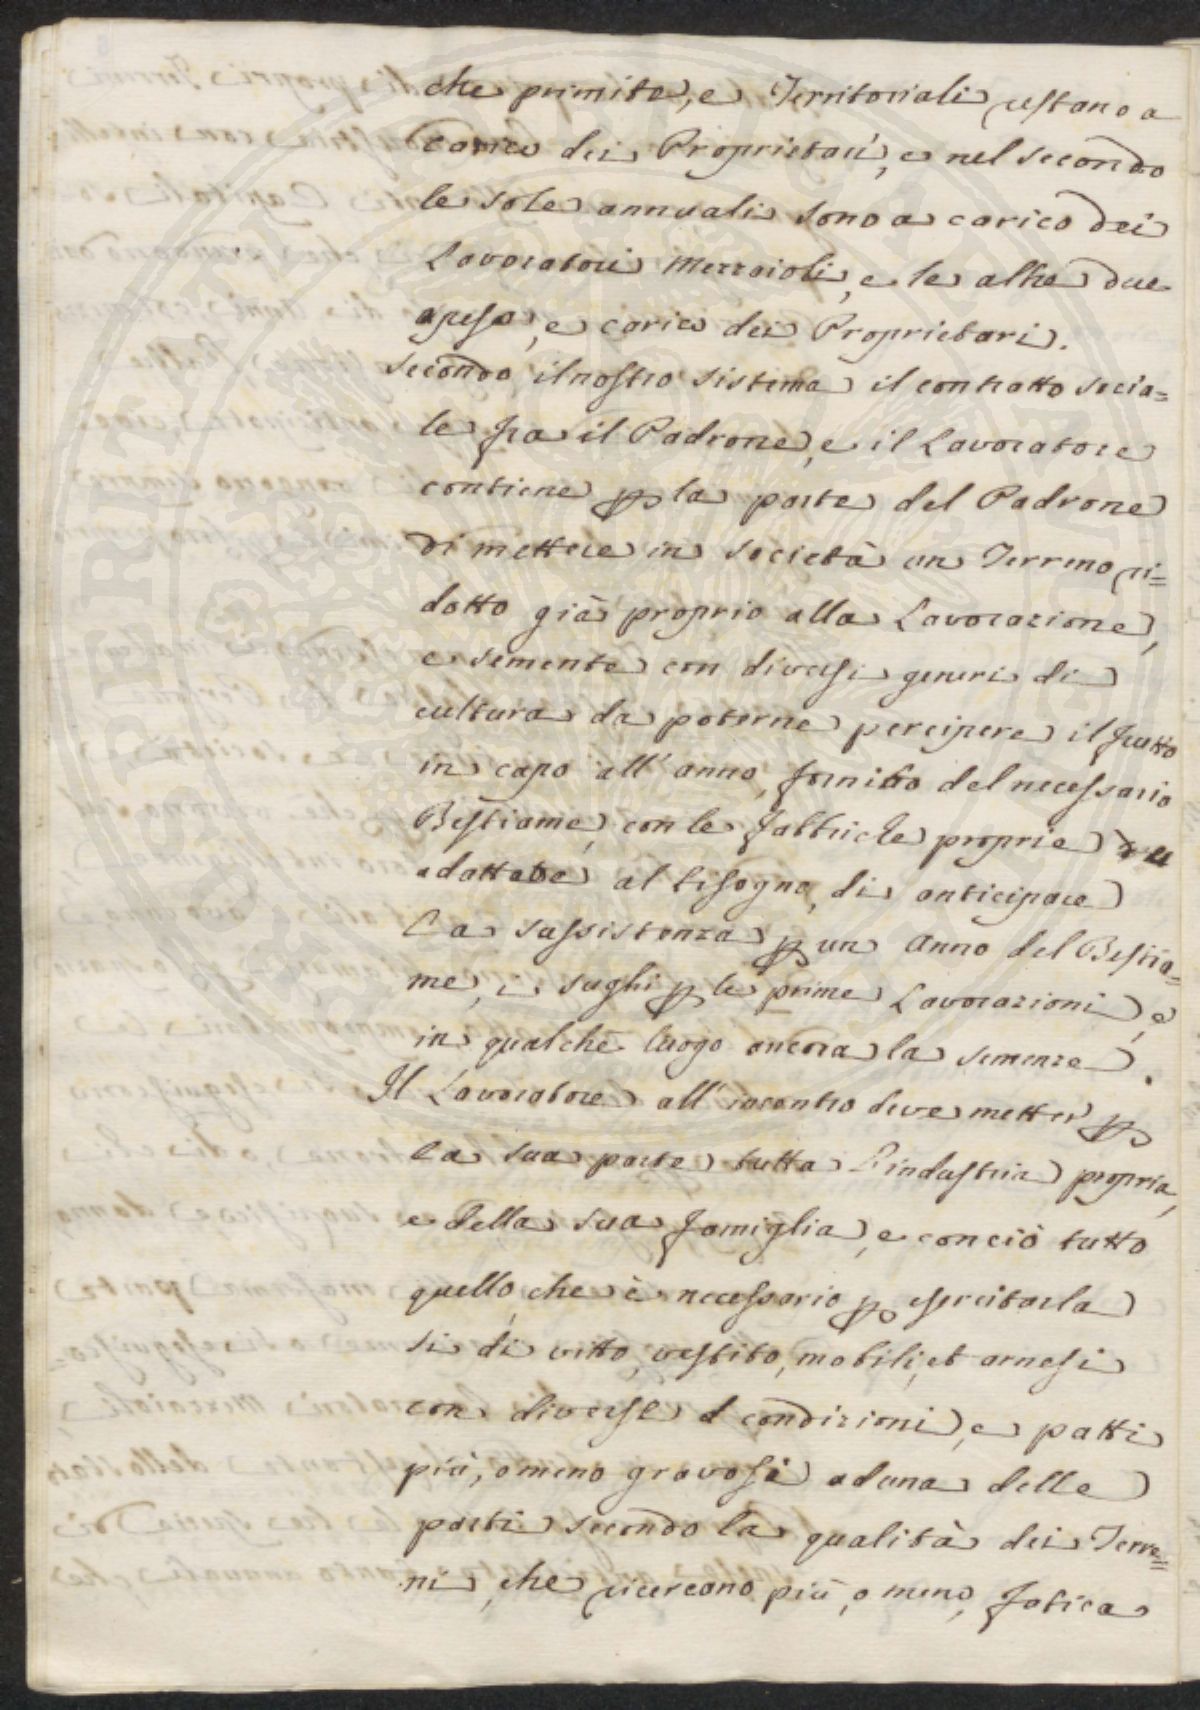 che primite, e Territoriali restano a
carico dei Proprietarj, e nel secondo
le sole annuali sono a carico dei
Lavoratori Mezzaioli, e le altre due
a peso, e carico dei Proprietari.
Secondo il nostro sistema il contratto socia=
le fra il Padrone, e il Lavoratore
contiene p la parte del Padrone
di mettere in società un Terreno ri=
dotto già proprio alla Lavorazione,
e semente con diversi generi di
cultura da poterne percipere il frutto
in capo all'anno, fornito del necessario
Bestiame, con le fabbriche proprie ed
adattate al bisogno, di anticipare
la sussistenza p un anno del Bestia=
me, i sughi p le prime Lavorazioni, e
in qualche luogo ancora la semenze.
Il Lavoratore all'incontro deve metter p
la sua parte tutta l'industria propria,
e della sua famiglia, e con ciò tutto
quello, che è necessario p esercitarla
si di vitto, vestito, mobili, et arnesi
con diverse condizioni, e patti
più, o meno gravosi ad una delle
parti secondo la qualità dei Terre=
ni, che ricercano più, o meno, fatica